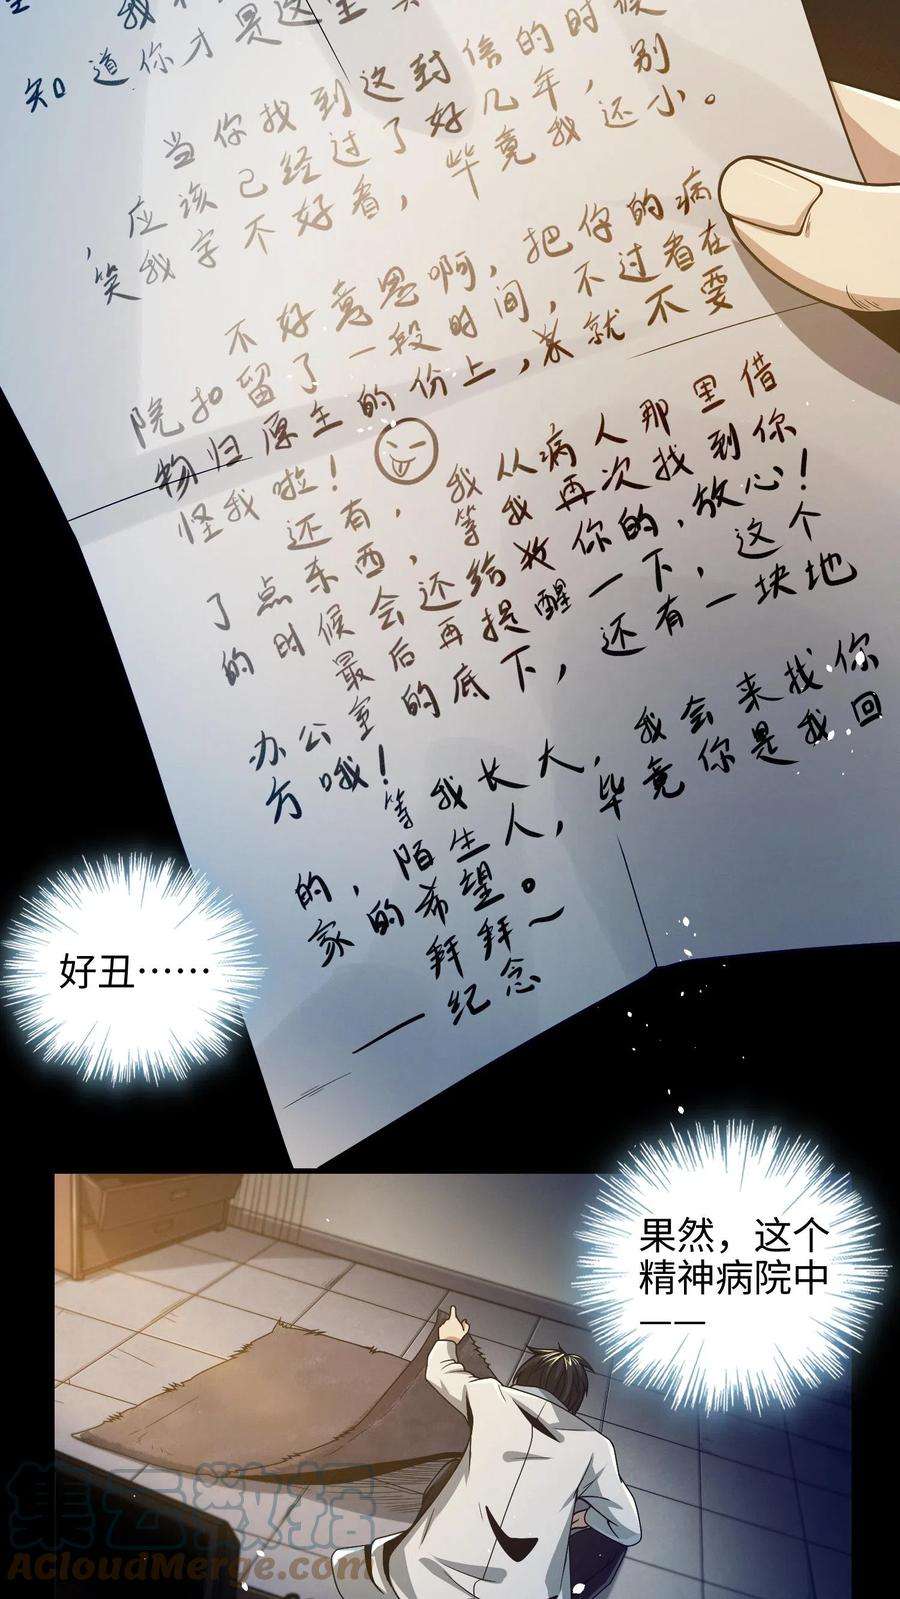 我
知道你才是这里
当你找到这封信的时候
，应该已经过了好几年，别
笑我字不好看，毕竟我还小。
不好意思啊，把你的病
院扣留了一段时间，不过看在
物归原主的份上，就不要
怪我啦！
还有，我从病人那里借
了点东西，等我再次找到你
的时候会还给你的，放心！
最后再提醒一下，这个
办公室的底下，还有一块地
方哦！
等我长大，我会来找你
的，陌生人，毕竟你是我回
家的希望。
拜拜～
——纪念
好丑……
果然，这个
精神病院中
——
集云数据
ACloudMerge.com